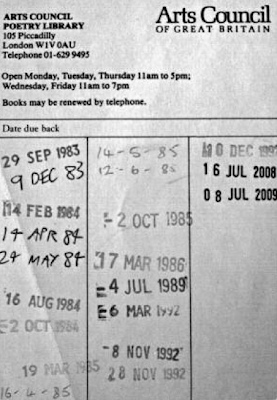 ARTS COUNCIL
POETRY LIBRARY
105 Piccadilly
London W1V 0AU
Telephone 01-629 9495
Arts Council
OF GREAT BRITAIN
Open Monday, Tuesday, Thursday 11am to 5pm;
Wednesday, Friday 11am to 7pm
Books may be renewed by telephone.
Date due back
29 SEP 1983
9 DEC 83
14 FEB 1984
14 APR 84
24 MAY 84
16 AUG 1984
2 OCT 1984
19 MAR 1985
16-4-85
14-5-85
12-6-85
-2 OCT 1985
17 MAR 1986
-4 JUL 1989
-6 MAR 1992
-8 NOV 1992
28 NOV 1992
10 DEC
16 JUL 2008
08 JUL 2009